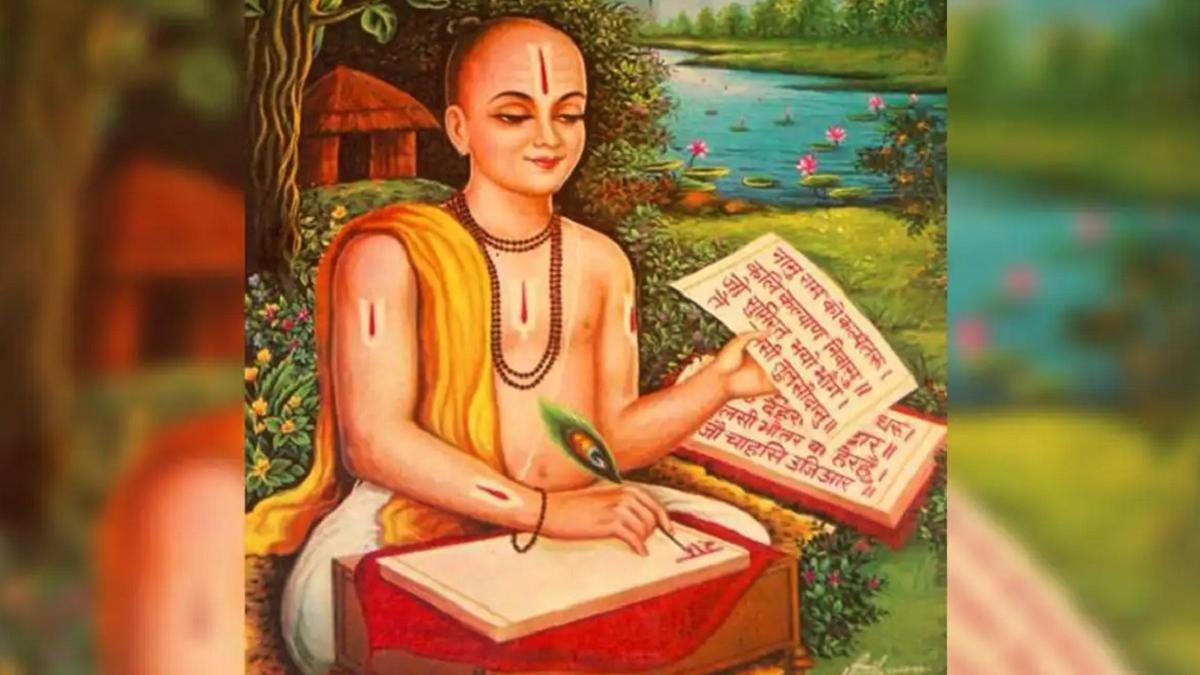 नामु राम को कल्पतरु।
कलि कल्याण निवासु॥
जो सुमिरत भयो भाँग
तुलसीदासु॥
धरु।
देहरी द्वार॥
लसी भीतर
जौ चाहसि उजिआर॥
राम